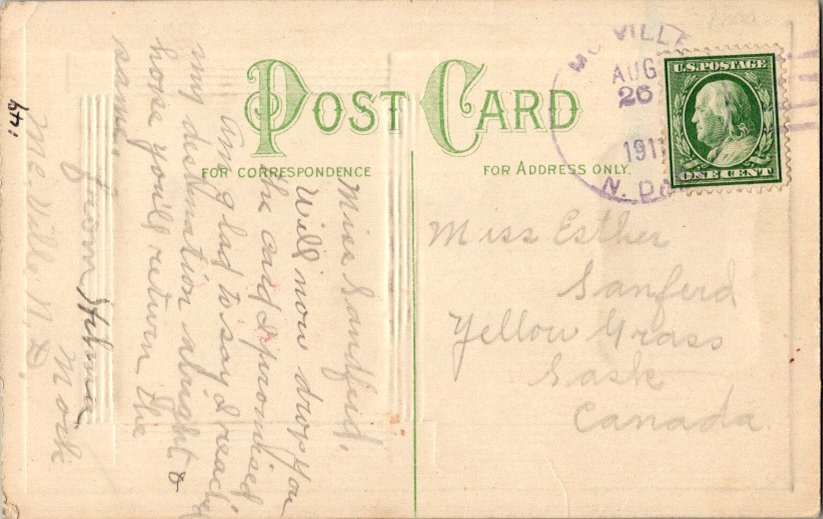 POST CARD
FOR CORRESPONDENCE
FOR ADDRESS ONLY.
MC VILLE
AUG
26
1911
N. DA
U.S. POSTAGE
ONE CENT
Miss Esther
Sanferd
Yellow Grass
Sask
Canada.
Miss Sandferd,
Will now drop you
the card I promised
am glad to say I reach'd
my destination alright &
hope you'll return the
same.
from
Mork
Mc.Ville N.D.